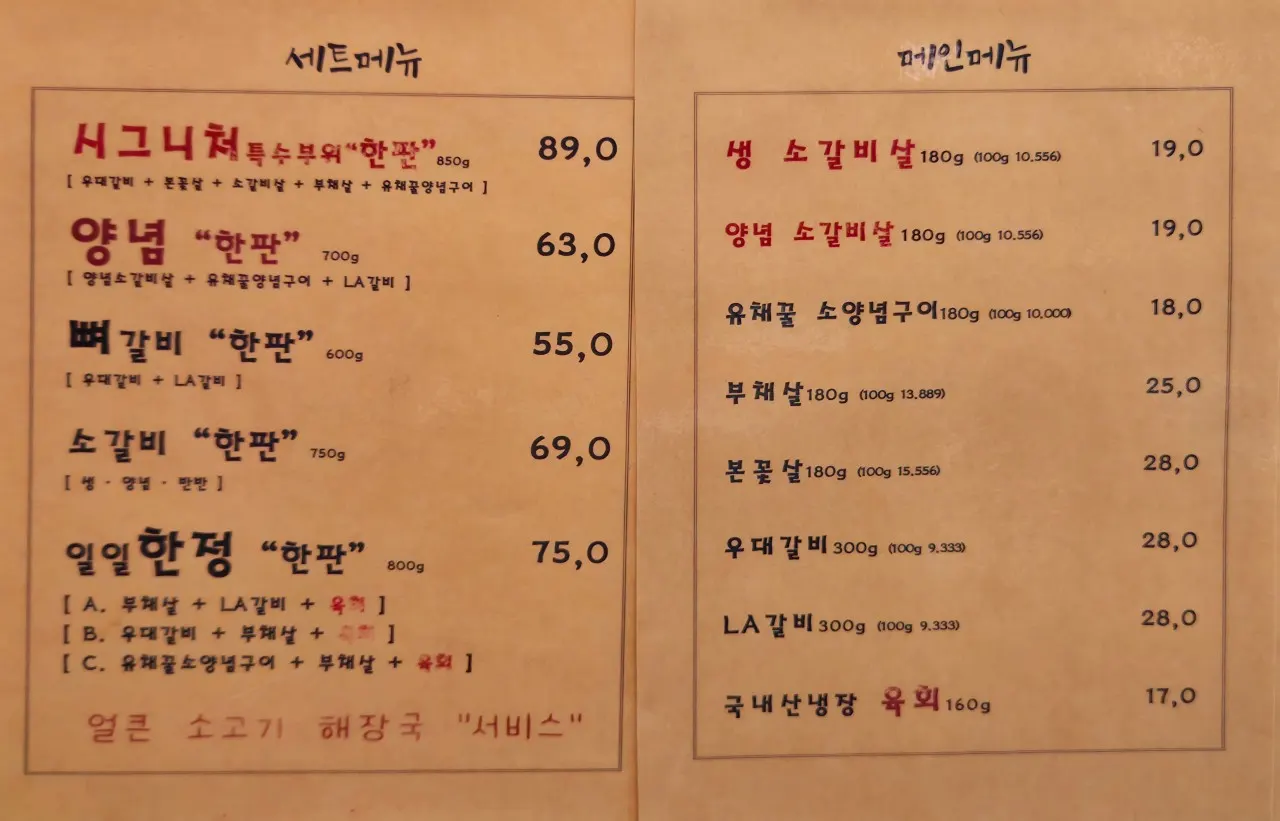 세트메뉴
시그니처특수부위“한판” 850g 89,0
[ 우대갈비 + 본꽃살 + 소갈비살 + 부채살 + 유채꿀양념구이 ]
양념 “한판” 700g 63,0
[ 양념소갈비살 + 유채꿀양념구이 + LA갈비 ]
뼈갈비 “한판” 600g 55,0
[ 우대갈비 + LA갈비 ]
소갈비 “한판” 750g 69,0
[ 생 · 양념 · 반반 ]
일일한정 “한판” 800g 75,0
[ A. 부채살 + LA갈비 + 육회 ]
[ B. 우대갈비 + 부채살 + 육회 ]
[ C. 유채꿀소양념구이 + 부채살 + 육회 ]
얼큰 소고기 해장국 "서비스"
메인메뉴
생 소갈비살180g (100g 10.556) 19,0
양념 소갈비살180g (100g 10.556) 19,0
유채꿀 소양념구이180g (100g 10.000) 18,0
부채살180g (100g 13.889) 25,0
본꽃살180g (100g 15.556) 28,0
우대갈비300g (100g 9.333) 28,0
LA갈비300g (100g 9.333) 28,0
국내산냉장 육회160g 17,0